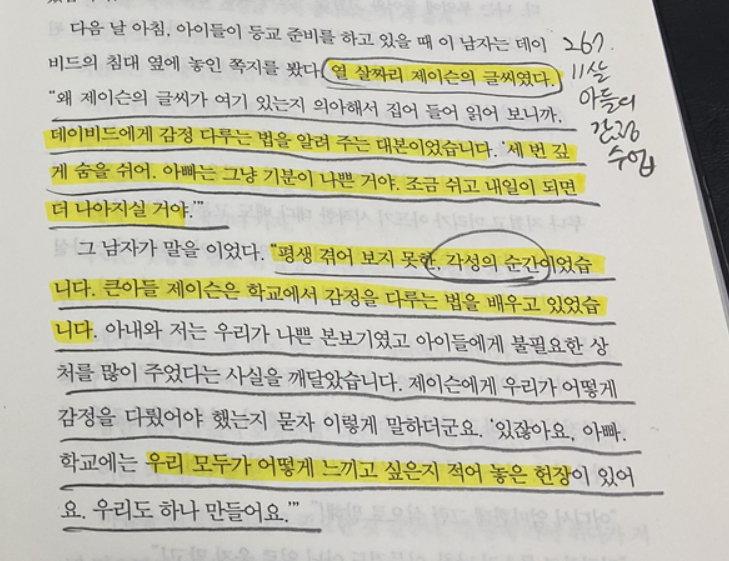 다음 날 아침, 아이들이 등교 준비를 하고 있을 때 이 남자는 데이
비드의 침대 옆에 놓인 쪽지를 봤다. 열 살짜리 제이슨의 글씨였다.
“왜 제이슨의 글씨가 여기 있는지 의아해서 집어 들어 읽어 보니까,
데이비드에게 감정 다루는 법을 알려 주는 대본이었습니다. ‘세 번 깊
게 숨을 쉬어. 아빠는 그냥 기분이 나쁜 거야. 조금 쉬고 내일이 되면
더 나아지실 거야.’”
그 남자가 말을 이었다. “평생 겪어 보지 못한, 각성의 순간이었습
니다. 큰아들 제이슨은 학교에서 감정을 다루는 법을 배우고 있었습
니다. 아내와 저는 우리가 나쁜 본보기였고 아이들에게 불필요한 상
처를 많이 주었다는 사실을 깨달았습니다. 제이슨에게 우리가 어떻게
감정을 다뤘어야 했는지 묻자 이렇게 말하더군요. ‘있잖아요, 아빠.
학교에는 우리 모두가 어떻게 느끼고 싶은지 적어 놓은 헌장이 있어
요. 우리도 하나 만들어요.’”
267.
11살
아들의
감정
수업